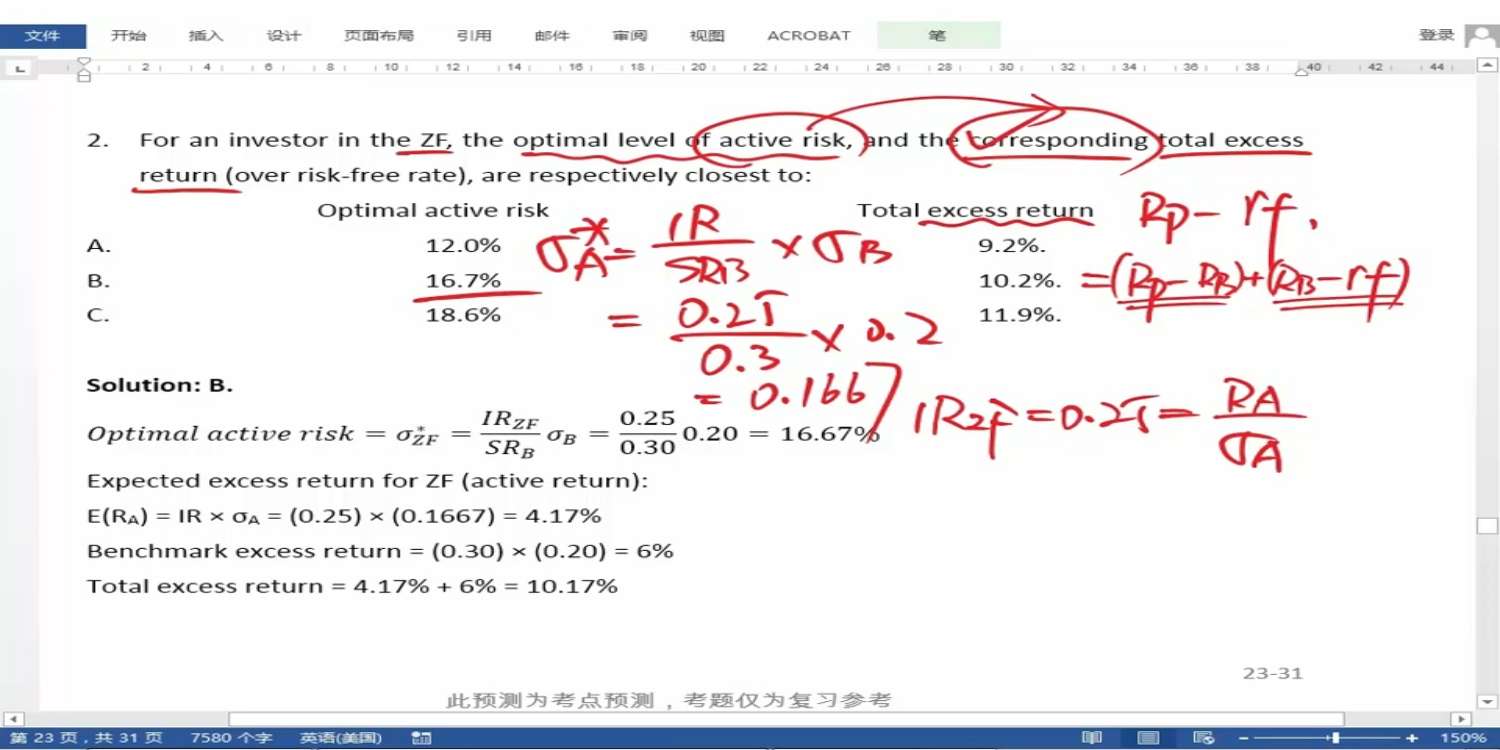 文件 开始 插入 设计 页面布局 引用 邮件 审阅 视图 ACROBAT 笔 登录
2 4 6 8 10 12 14 16 18 20 22 24 26 28 30 32 34 36 38 40 42 44
2. For an investor in the ZF, the optimal level of active risk, and the corresponding total excess
return (over risk-free rate), are respectively closest to:
Optimal active risk Total excess return Rp - rf,
A. 12.0% σA* = IR/SRB × σB 9.2%.
B. 16.7% 10.2%. = (Rp - RB) + (RB - rf)
C. 18.6% = 0.25/0.3 × 0.2 11.9%.
Solution: B.
= 0.1667
Optimal active risk = σ*ZF = IRZF/SRB σB = 0.25/0.30 0.20 = 16.67% IRZF = 0.25 = RA/σA
Expected excess return for ZF (active return):
E(RA) = IR × σA = (0.25) × (0.1667) = 4.17%
Benchmark excess return = (0.30) × (0.20) = 6%
Total excess return = 4.17% + 6% = 10.17%
23-31
此预测为考点预测，考题仅为复习参考
第 23 页，共 31 页 7580 个字 英语(美国) 150%